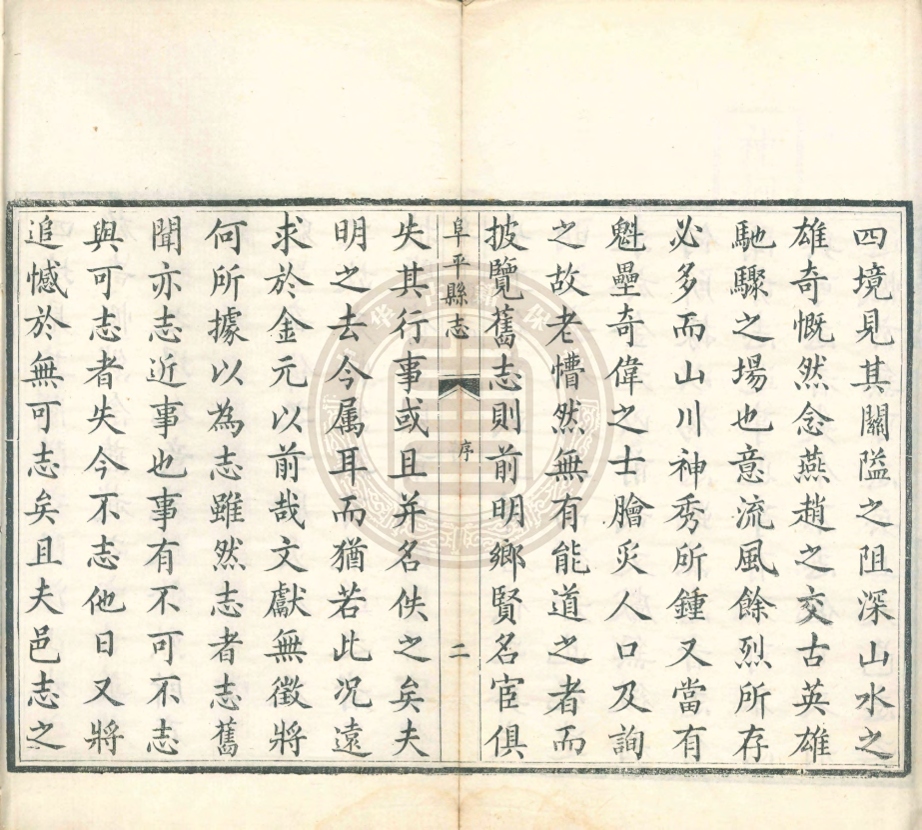 四境見其關隘之阻深山水之
雄奇慨然念燕趙之交古英雄
馳驟之場也意流風餘烈所存
必多而山川神秀所鍾又當有
魁壘奇偉之士膾炙人口及詢
之故老懵然無有能道之者而
披覽舊志則前明鄉賢名宦俱
阜平縣志 序 二
失其行事或且并名佚之矣夫
明之去今属耳而猶若此况遠
求於金元以前哉文獻無徵將
何所據以為志雖然志者志舊
聞亦志近事也事有不可不志
與可志者失今不志他日又將
追憾於無可志矣且夫邑志之